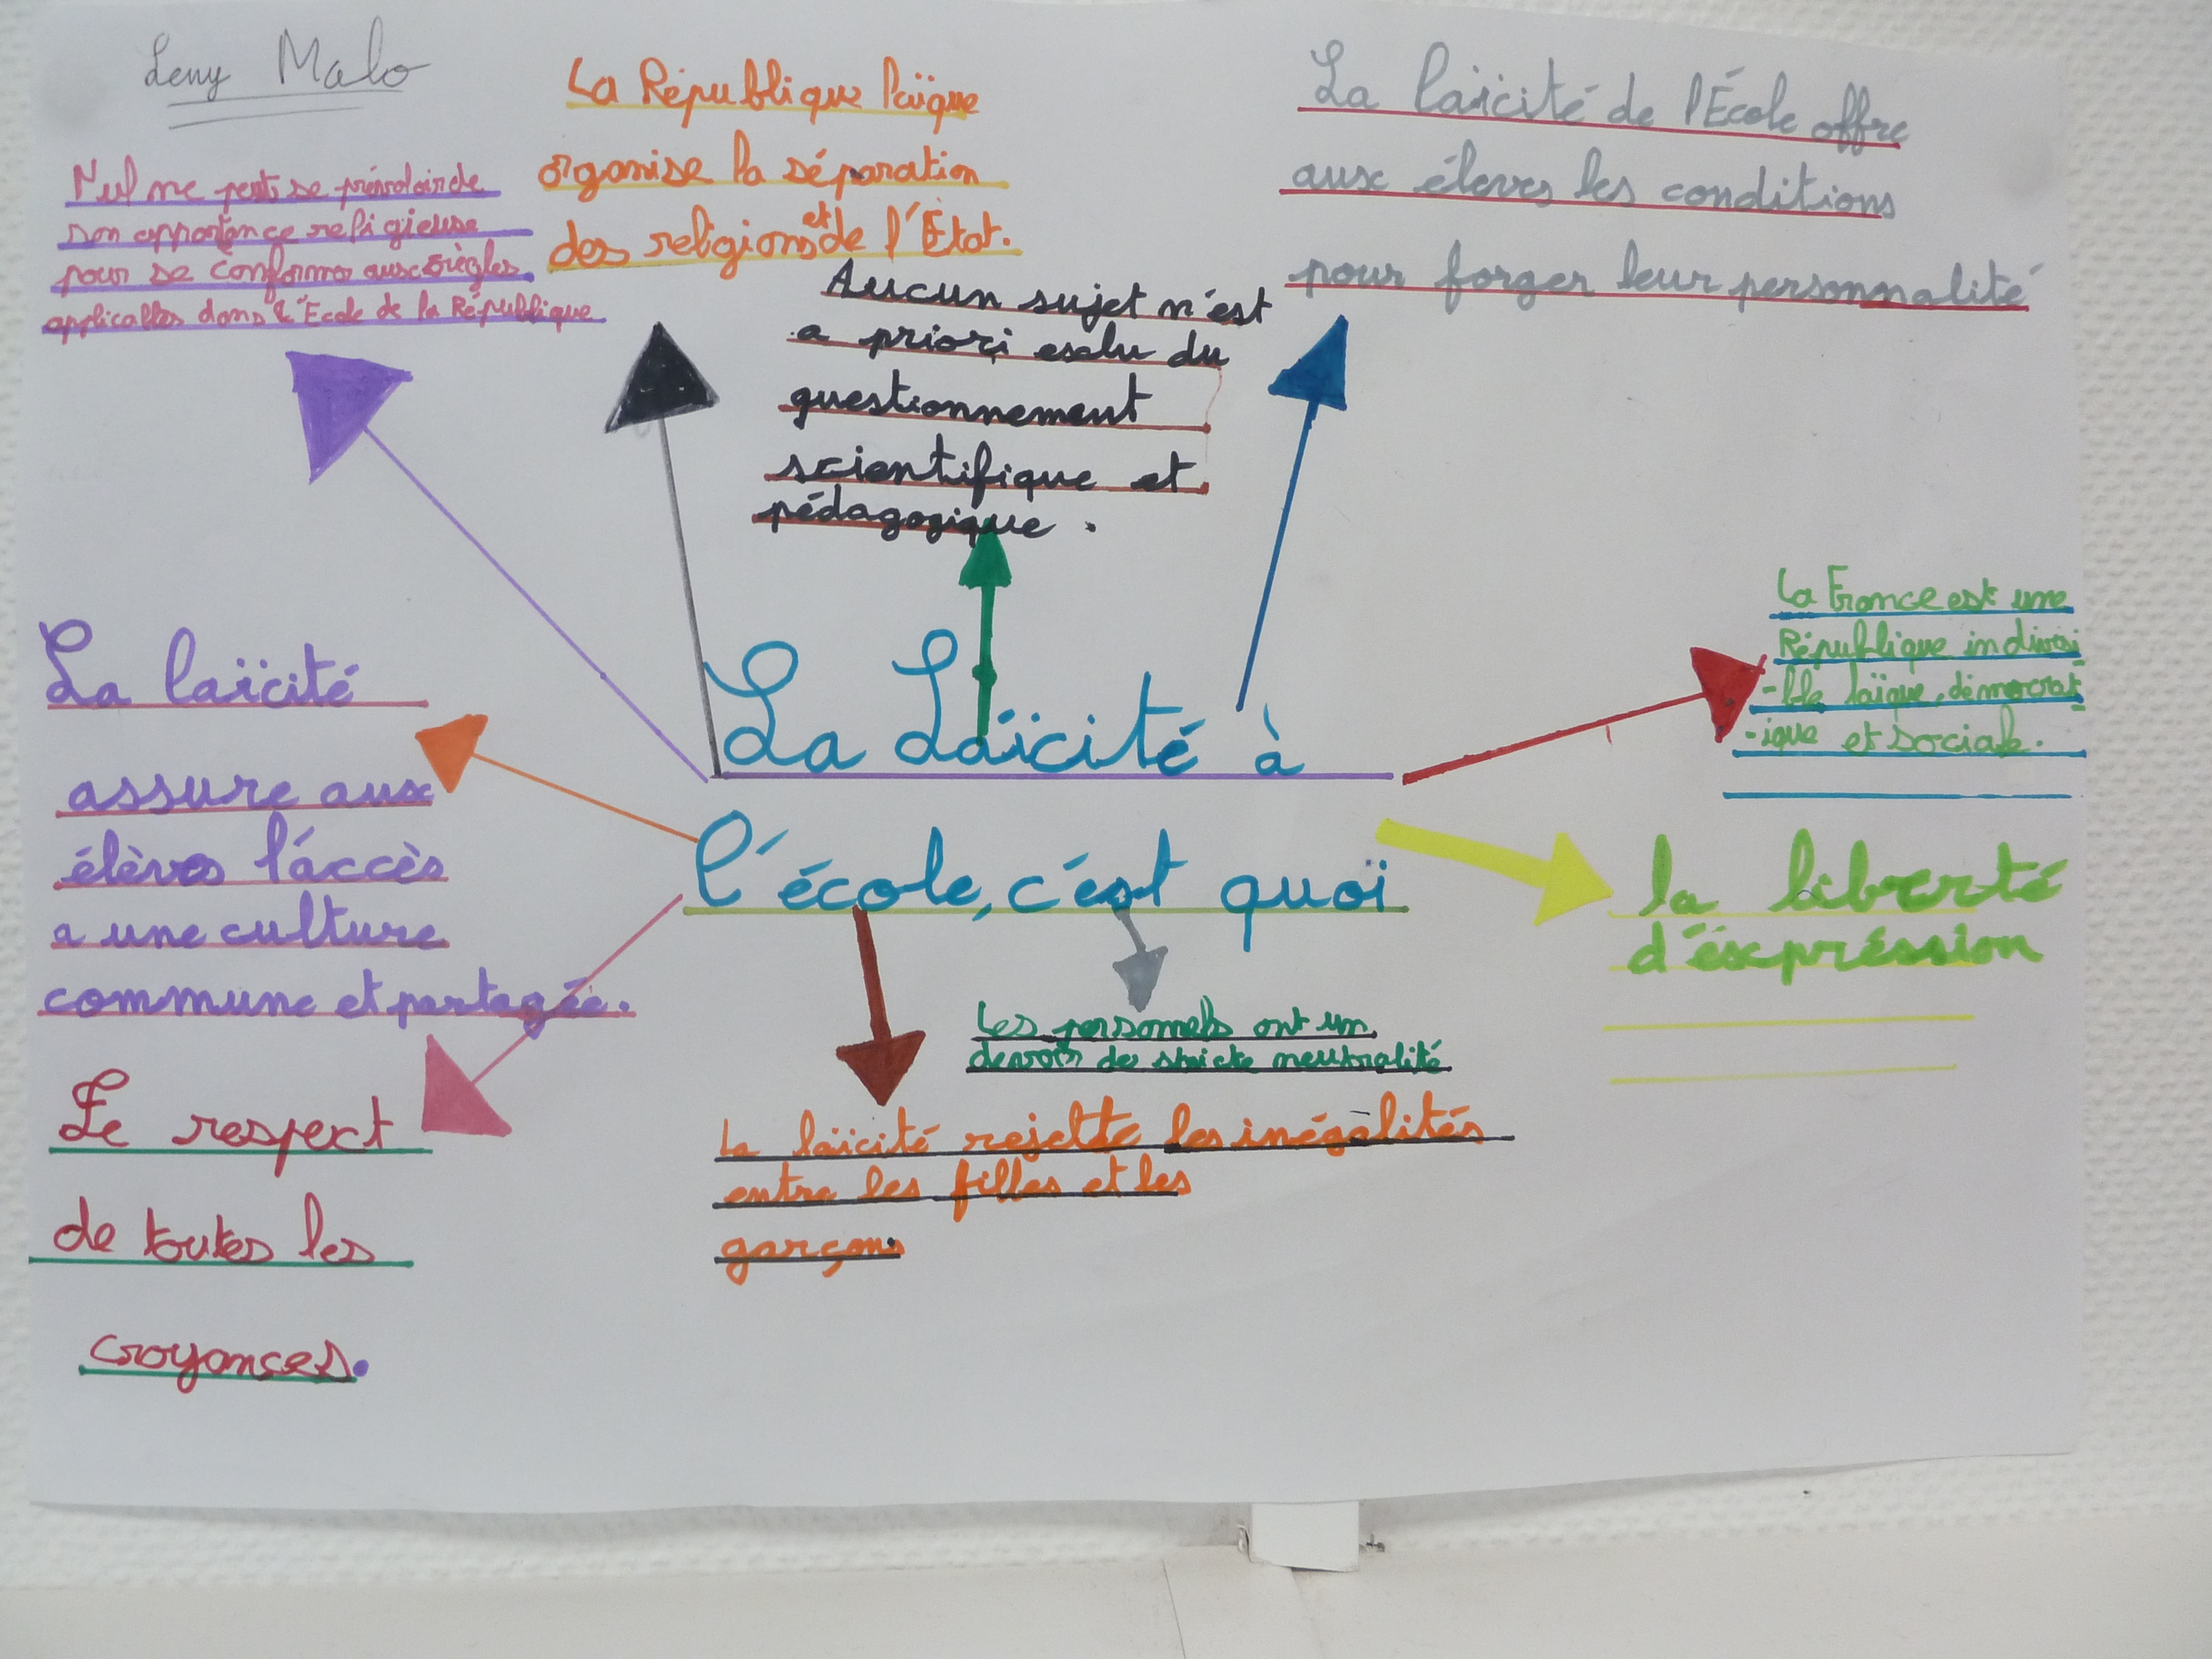 Leny Malo
Nul ne peut se prévaloir de
son appartenance religieuse
pour se conformer aux règles
applicables dans l'École de la République
La République laïque
organise la séparation
des religions et de l'État.
Aucun sujet n'est
a priori esclu du
questionnement
scientifique et
pédagogique.
La laïcité de l'École offre
aux élèves les conditions
pour forger leur personnalité
La France est une
République indivisi
-ble laïque, démocrat
-ique et sociale.
La laïcité
assure aux
élèves l'accès
a une culture
commune et partagée.
La Laïcité à
l'école, c'est quoi
la liberté
d'éxpréssion
Les personnels ont un
devoir de stricte neutralité
La laïcité rejette les inégalités
entre les filles et les
garçons
Le respect
de toutes les
croyances.